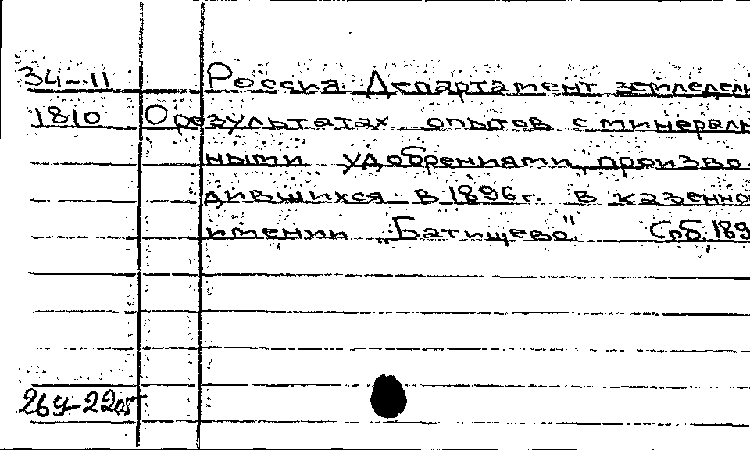 34-11 Россия. Департамент земледел
1810 О результатах опытов с минераль
ными удобрениями, произво
дившихся в 1896 г. в казенно
имении „Батищево" Спб. 189